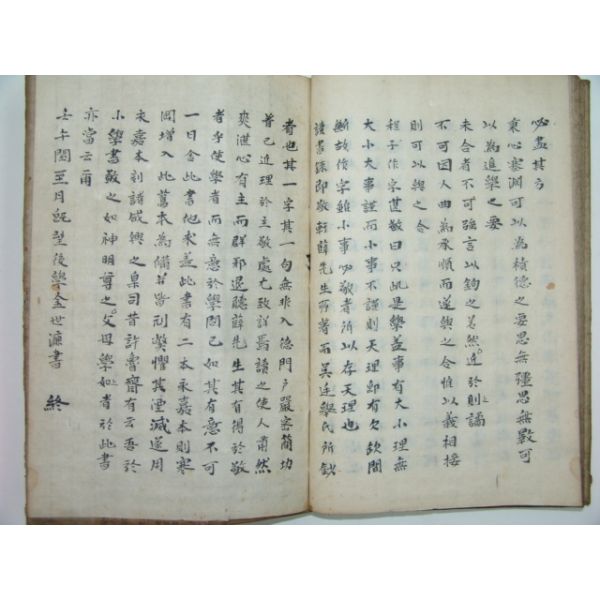 必盡其方
秉心塞淵可以為積德之要思無疆思無斁可
以為進學之要
未合者不可强言以鉤之若然近於則譎
不可因人曲氣承順而遂與之合惟以義相接
則可以與之合
程子作字甚敬曰只此是學蓋事有大小理無
大小大事謹而小事不謹則天理即有欠缺間
斷故作字雖小事必敬者所以存天理也
讀書錄即敬軒薛先生所著而吳廷擧氏所鈔
者也其一字其一句無非入德門戶嚴密簡切
皆己近理於主敬處尤致詳焉讀之使人肅然
爽灑心有主而群邪退聽薛先生其有得於敬
者乎使學者而無意於學問已如其有意不可
一日舍此書他求蓋此書有二本永嘉本則寒
岡增入此舊本為備若皆刊獘懼其湮滅遂用
永嘉本刊諸咸興之臬司昔許魯齋有云吾於
小學書敬之如神明尊之父母學如者於此書
亦當云爾
壬午閏至月旣望後學金世濂書 終